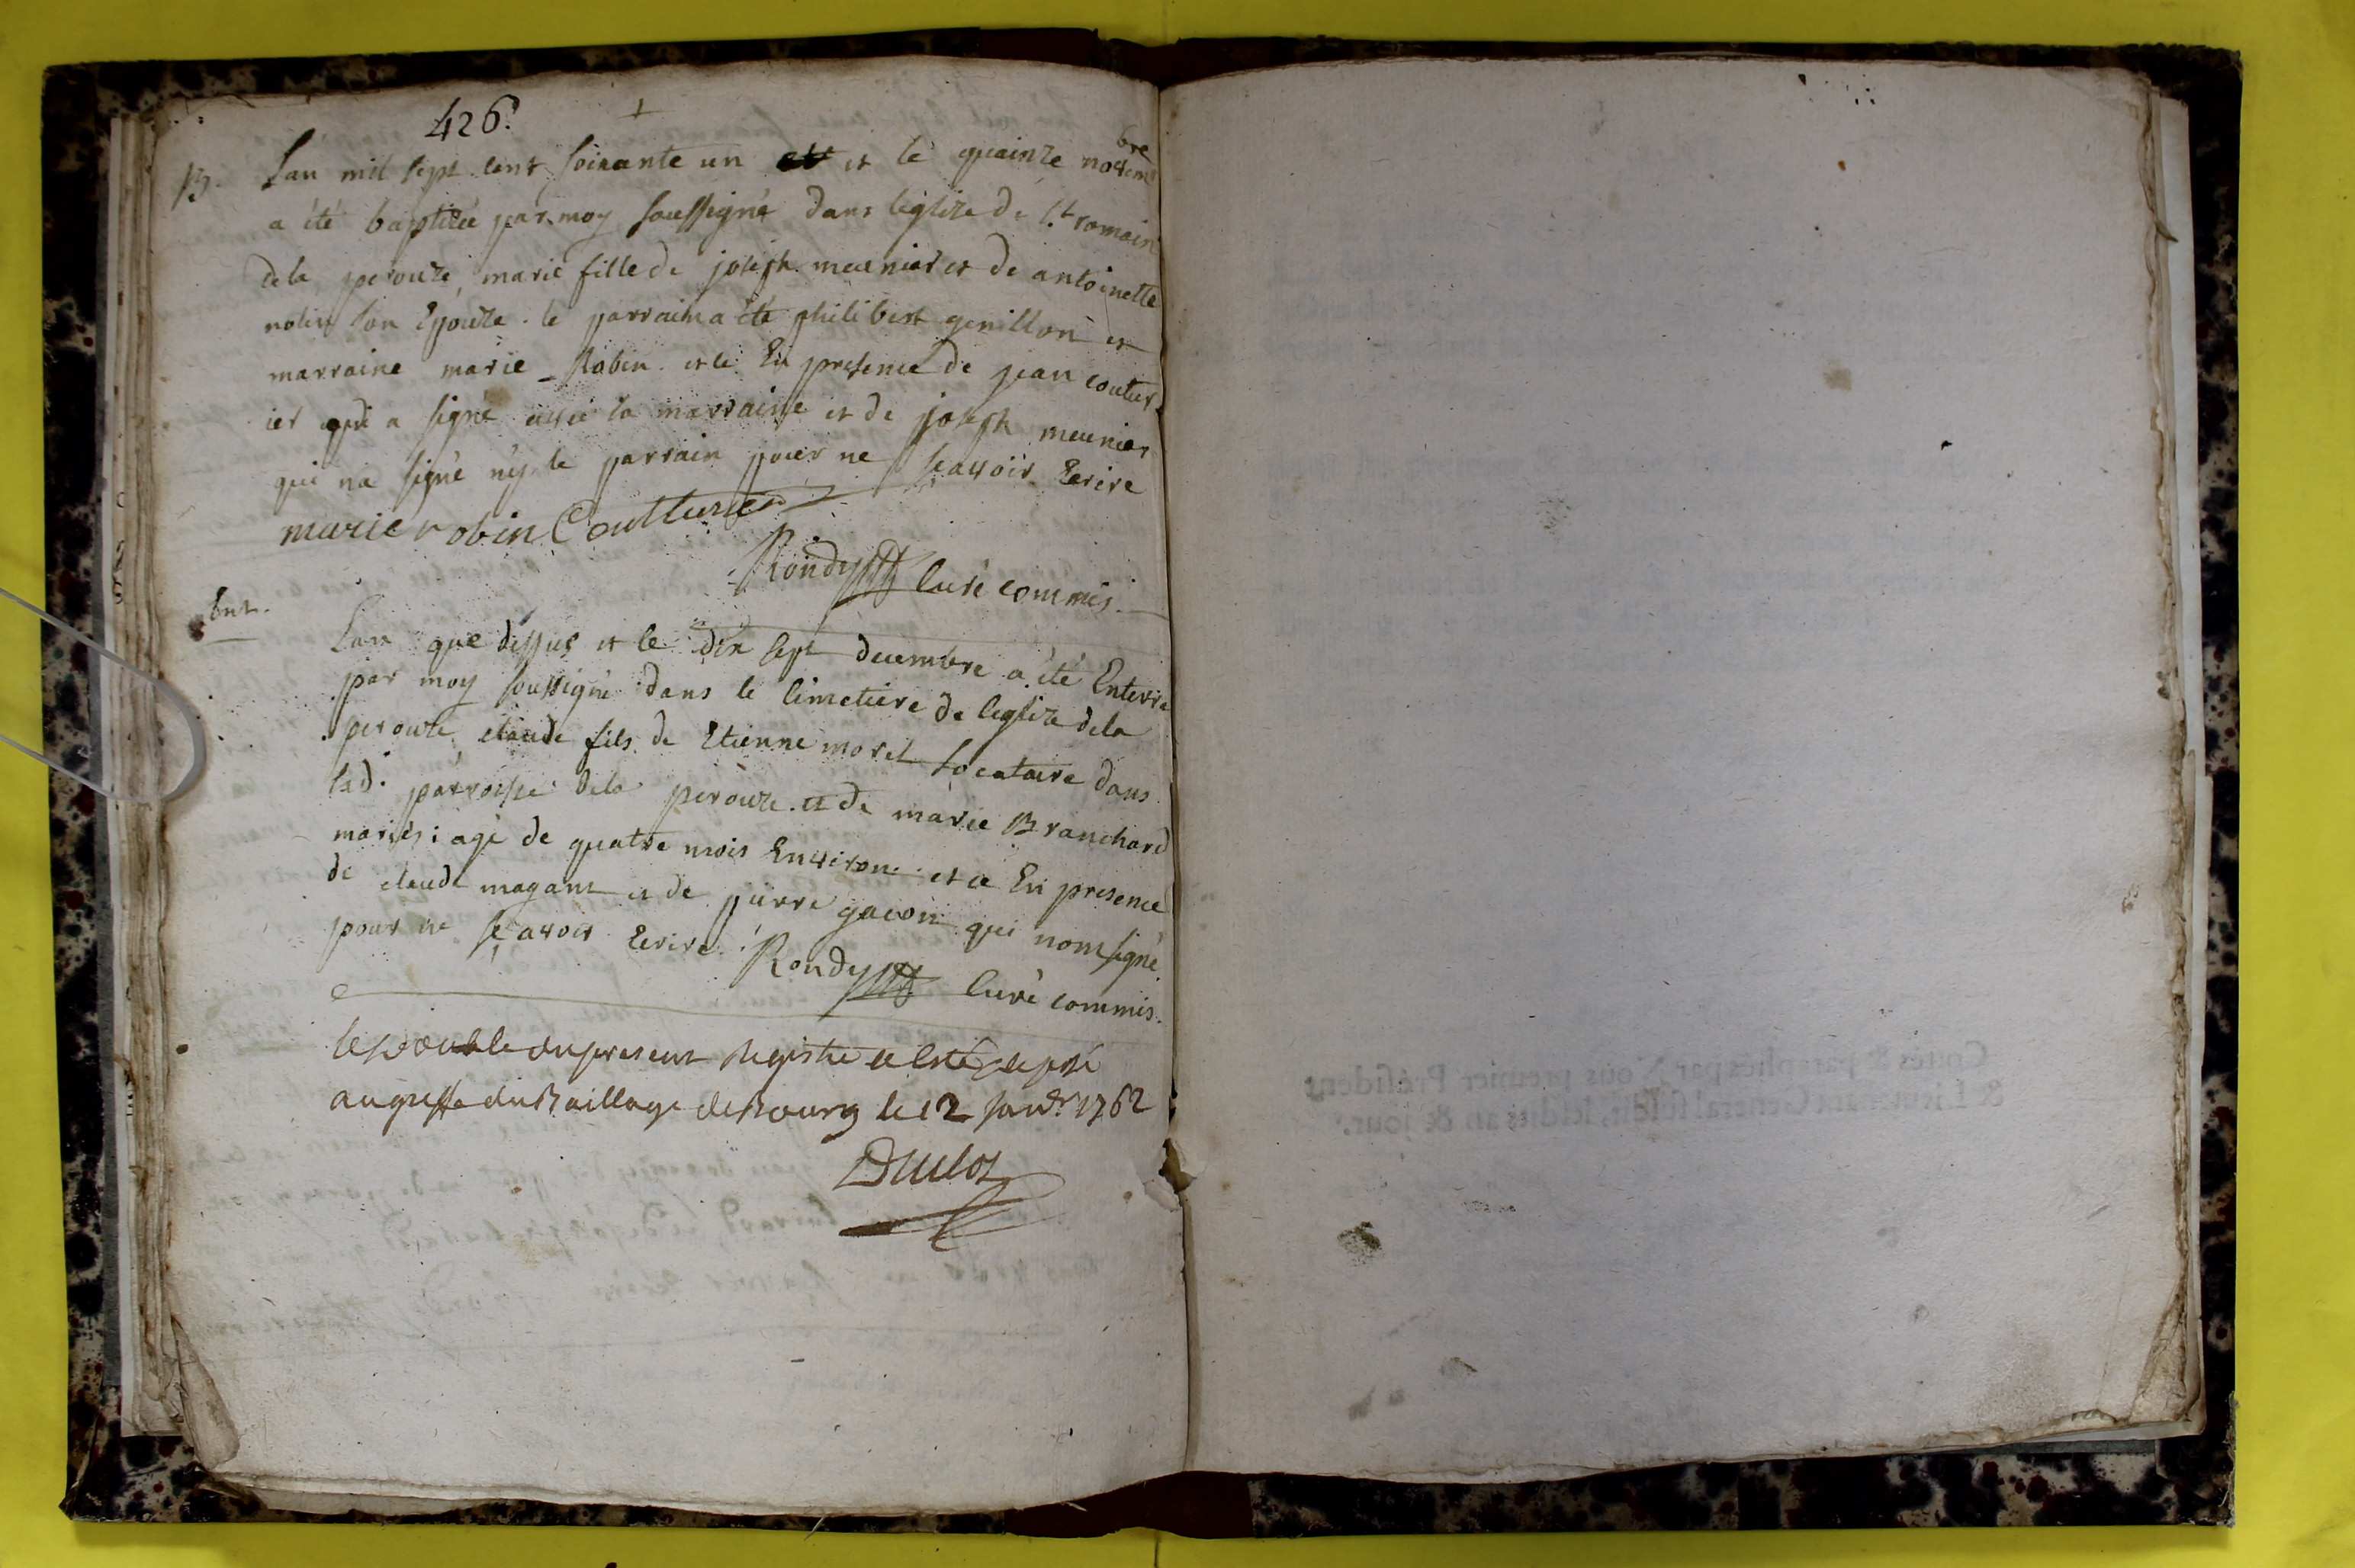 426.
B. Lan mil sept cent soixante un et le quainze novembre
a été baptizée par moy soussigné dans leglize de St romain
dela perouze, marie fille de joseph meunier et de antoinette
nolin son Epouze. le parrain a été philibert genillon et
marraine marie Robin. et ce En presence de jean coutur
ier qui a signé avec la marraine et de joseph meunier
qui na signé ny le parrain pour ne scavoir Ecrire
marie robin Coutturier
Rondy Curé commis.
Ent.
Lan que dessus et le dix sept decembre a été Enterré
par moy soussigné dans le Cimetiere de leglize dela
perouze, claude fils de Etienne morel Locataire dans
lad. parroisse dela perouze et de marie Branchard
mariés; agé de quatre mois Environ et ce En presence
de claude magant et de pierre gacon qui nom signé
pour ne scavoir Ecrire. Rondy Curé commis.
le double du present Registre a esté deposé
au greffe du Baillage de Bourg le 12 janr 1762
Duclos
Cottés & paraphés par Nous premier Président
& Lieutenant Général susdit, lesdits an & jour.